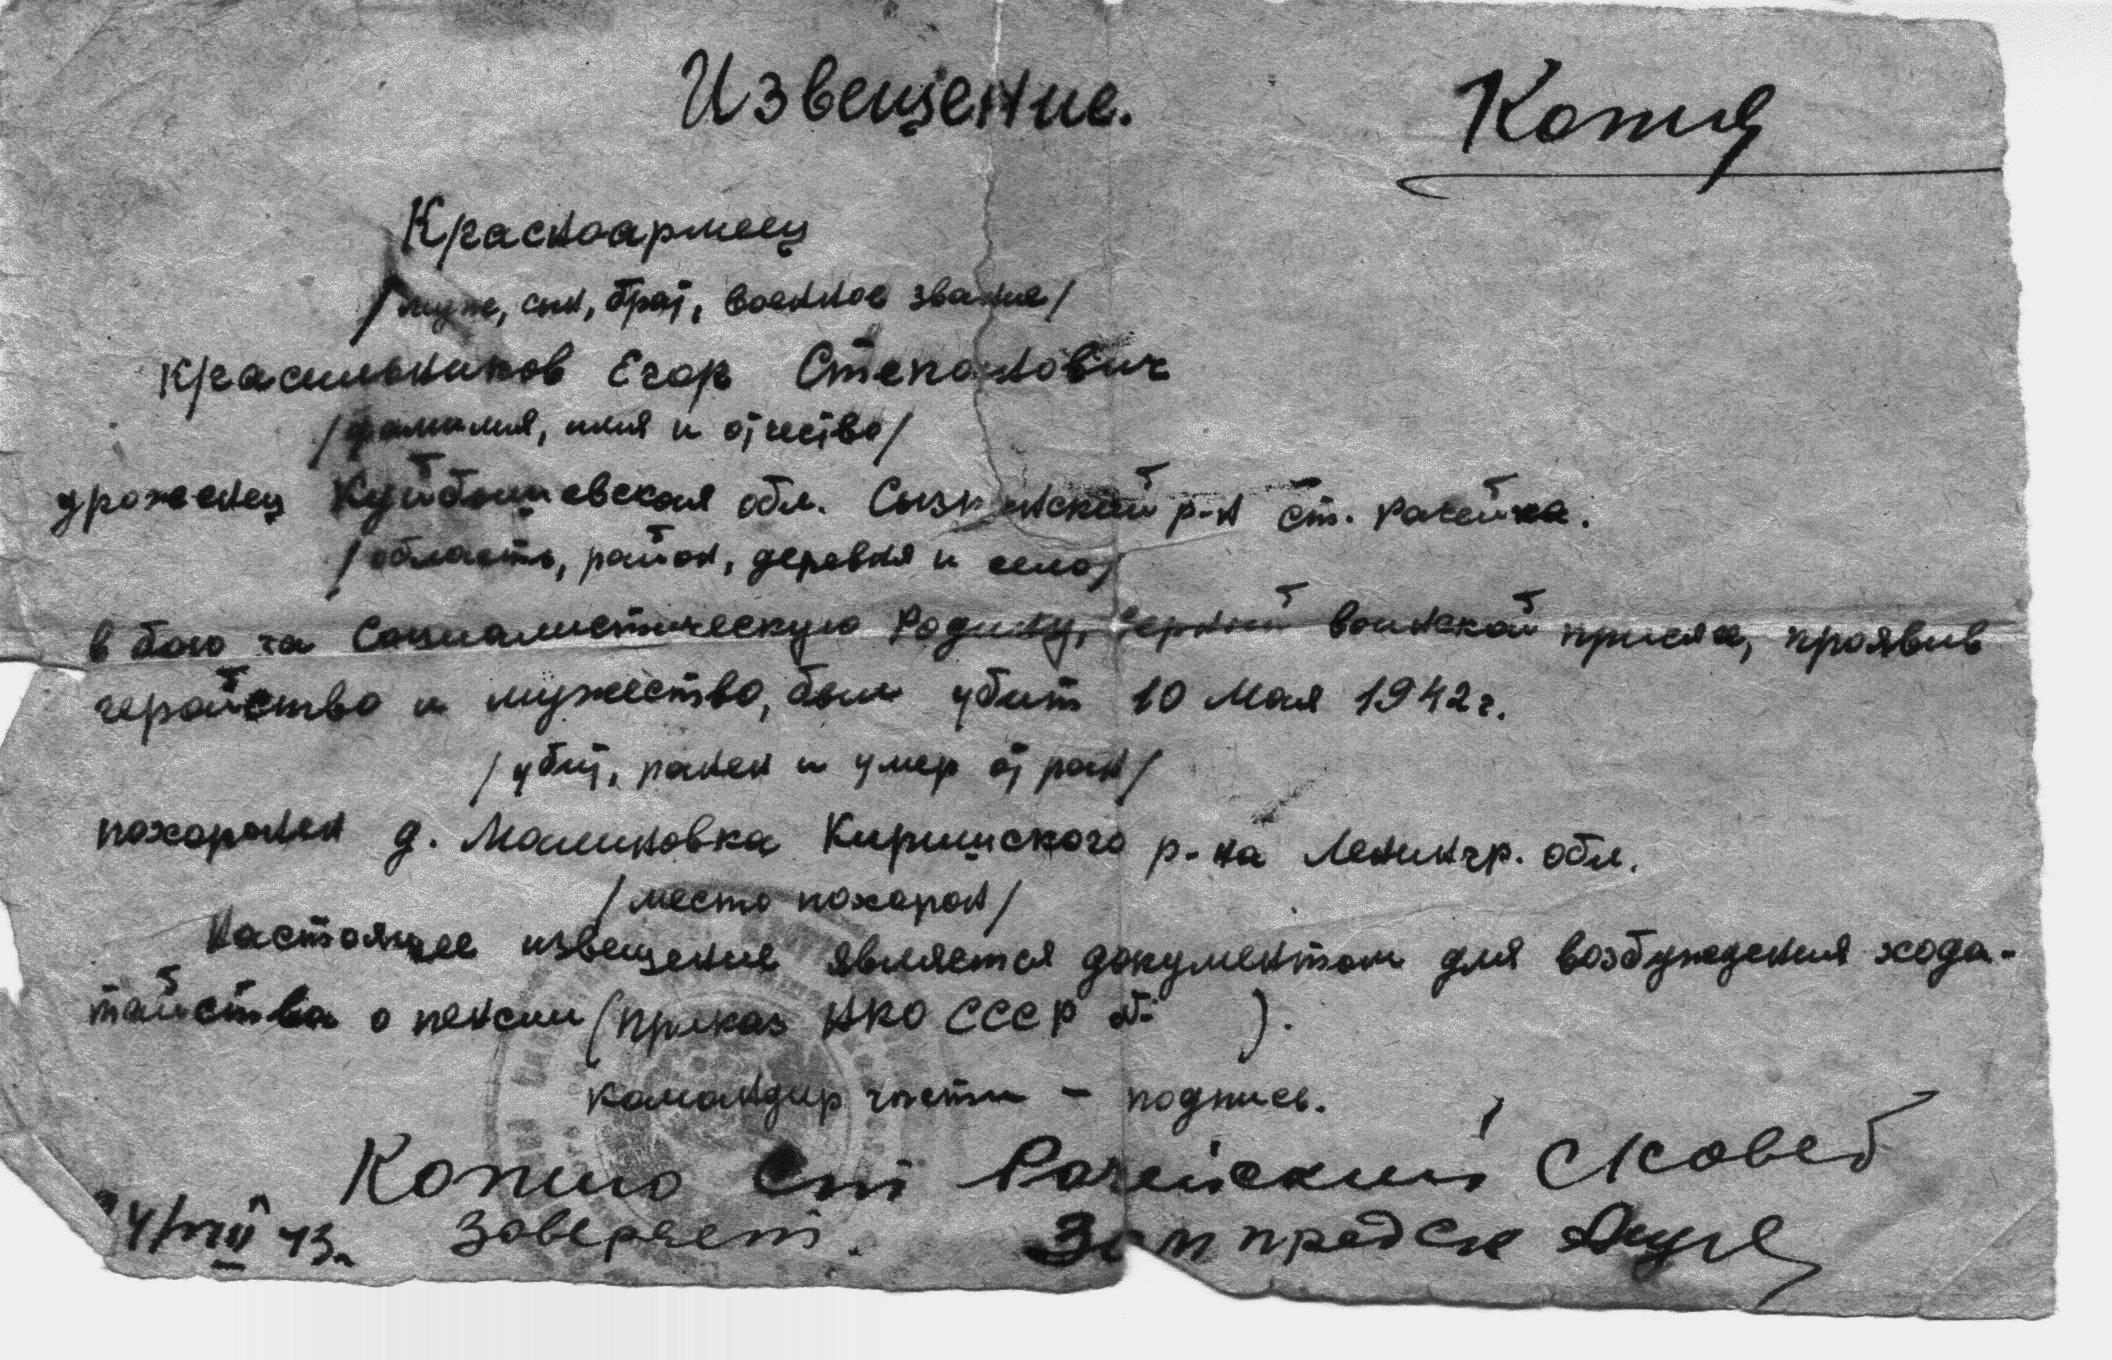 Извещение.
Копия
Красноармеец
/муж, сын, брат, военное звание/
Красильников Егор Степанович
/фамилия, имя и отчество/
уроженец Куйбышевская обл. Сызранский р-н ст. Рачейка.
/область, район, деревня и село/
в бою за Социалистическую Родину, верный воинской присяге, проявив
геройство и мужество, был убит 10 Мая 1942 г.
/убит, ранен и умер от ран/
похоронен д. Малиновка Киришского р-на Ленингр. обл.
/место похорон/
Настоящее извещение является документом для возбуждения хода-
тайства о пенсии (приказ НКО СССР № ).
командир части - подпись.
Копию Ст Рачейский
заверяет.
43г.
Зам пред